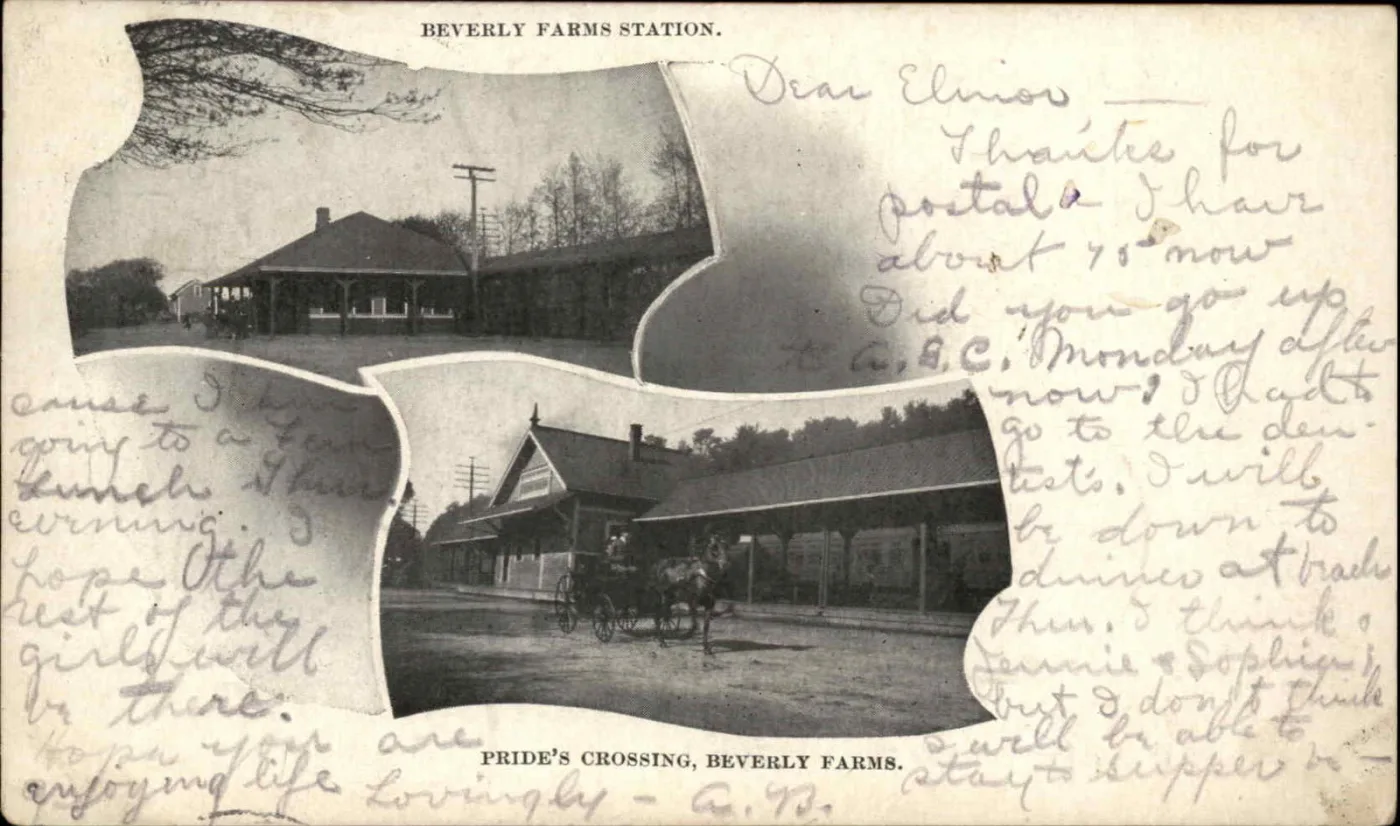 BEVERLY FARMS STATION.
Dear Elinor —
Thanks for
postal I have
about 75 now
Did you go up
to A. B. C. Monday after
now? I had to
go to the den-
tist's. I will
be down to
dinner at beach
Thur. I think
Jennie & Sophia
but I don't think
I will be able to
stay to supper be —
cause I am
going to a
Lunch Thur
evening. I
hope the
rest of the
girls will
be there.
Hope you are
enjoying life
Lovingly — A. B.
PRIDE'S CROSSING, BEVERLY FARMS.